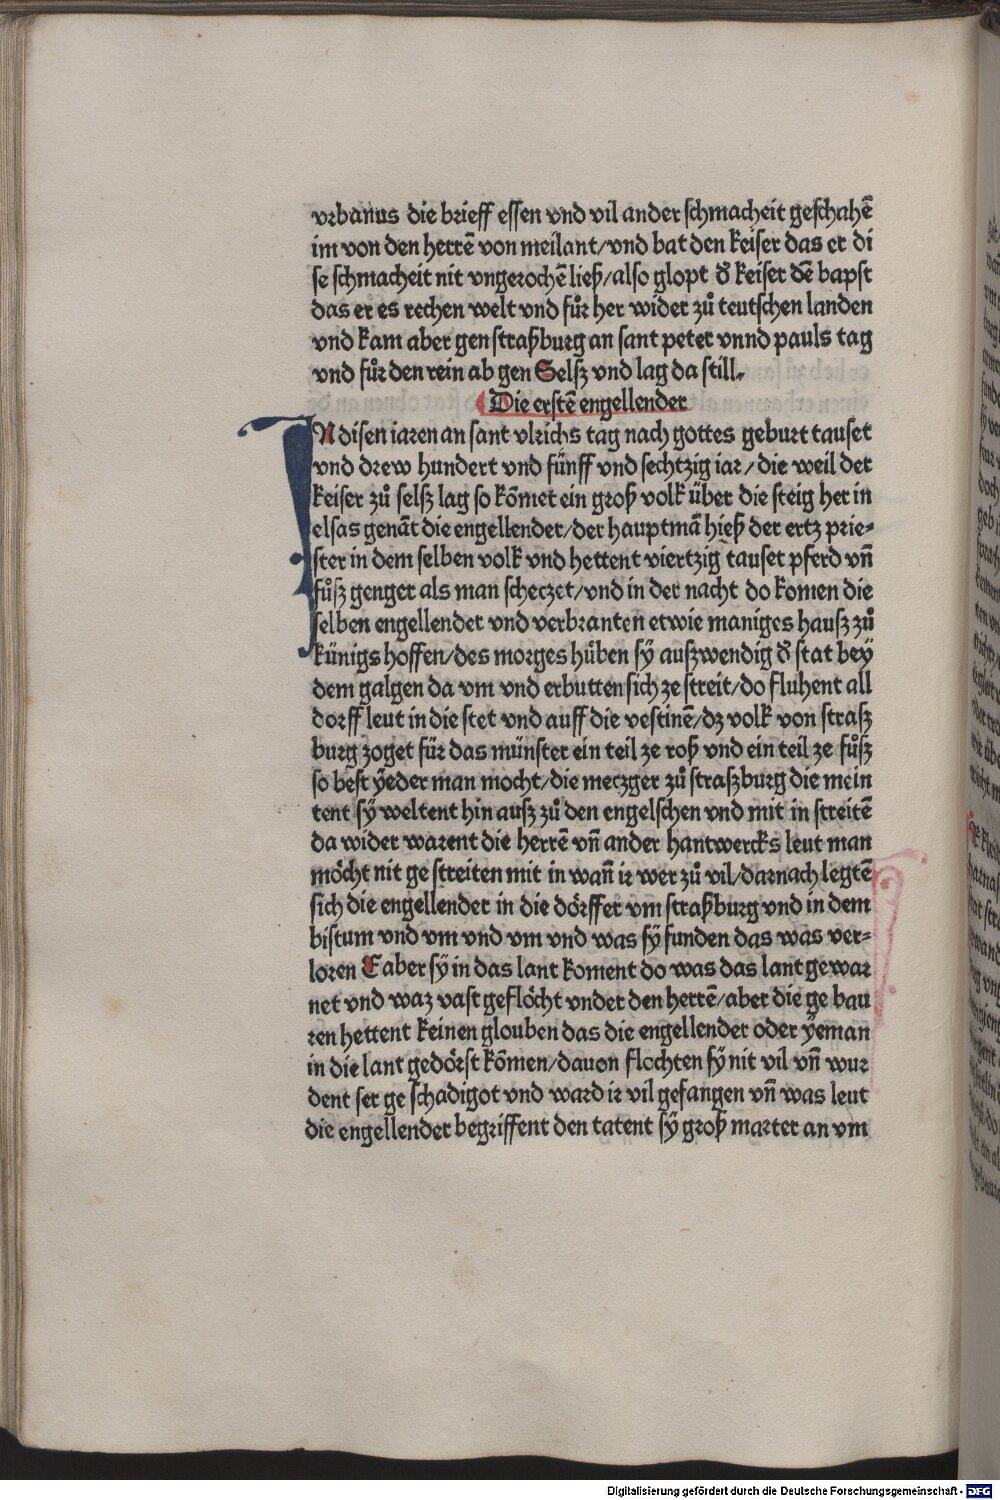 vrbanus die brieff essen vnd vil ander schmacheit geschahē
im von den herrē von meilant/vnd bat den keiser das er di
se schmacheit nit vngerochē ließ/also glopt d̕ keiser dē bapst
das er es rechen welt vnd fůr her wider zů teutschen landen
vnd kam aber gen straßburg an sant peter vnnd pauls tag
vnd fůr den rein ab gen Selsz vnd lag da still.
Die erstē engellender
IN disen iaren an sant vlrichs tag nach gottes geburt tauset
vnd drew hundert vnd fünff vnd sechtzig iar/die weil der
keiser zů selsz lag so kōmet ein groß volk über die steig her in
elsas genāt die engellender/der hauptmā hieß der ertz prie-
ster in dem selben volk vnd hettent viertzig tauset pferd vn̄
fůsz genger als man scheczet/vnd in der nacht do komen die
selben engellender vnd verbranten etwie maniges hausz zů
künigs hoffen/des morges hüben sÿ auszwendig d̕ stat beÿ
dem galgen da vm vnd erbutten sich ze streit/do fluhent all
dorff leut in die stet vnd auff die vestinē/dz volk von strasz
burg zoget für das münster ein teil ze roß vnd ein teil ze fůsz
so best ÿeder man mocht/die meczger zů straszburg die mein
tent sÿ weltent hin ausz zů den engelschen vnd mit in streitē
da wider warent die herrē vn̄ ander hantwercks leut man
möcht nit ge streiten mit in wan̄ ir wer zů vil/darnach legtē
sich die engellender in die dörffer vm straßburg vnd in dem
bistum vnd vm vnd vm vnd was sÿ funden das was ver-
loren E aber sÿ in das lant koment do was das lant gewar
net vnd waz vast geflöcht vnder den herrē/aber die ge bau
ren hettent keinen glouben das die engellender oder ÿeman
in die lant gedörst kōmen/dauon flochten sÿ nit vil vn̄ wur
dent ser ge schadigot vnd ward ir vil gefangen vn̄ was leut
die engellender begriffent den tatent sÿ groß marter an vm
Digitalisierung gefördert durch die Deutsche Forschungsgemeinschaft - DFG